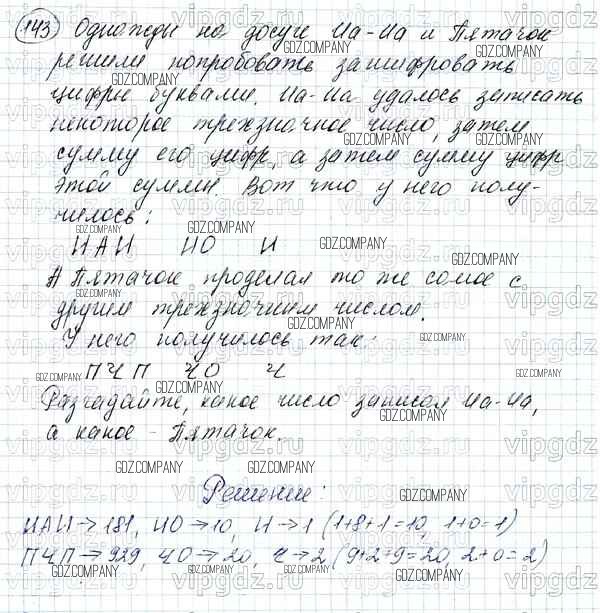 143 Однажды на досуге Иа-Иа и Пятачок
решили попробовать зашифровать
цифры буквами. Иа-Иа удалось записать
некоторое трехзначное число, затем
сумму его цифр, а затем сумму цифр
этой суммы. Вот что у него полу-
чилось:
ИАИ ИО И
А Пятачок проделал то же самое с
другим трехзначным числом.
У него получилось так:
ПЧП ЧО Ч
Разгадайте, какое число записал Иа-Иа,
а какое - Пятачок.
Решение:
ИАИ → 181, ИО → 10, И → 1 (1+8+1=10, 1+0=1)
ПЧП → 929, ЧО → 20, Ч → 2 (9+2+9=20, 2+0=2)